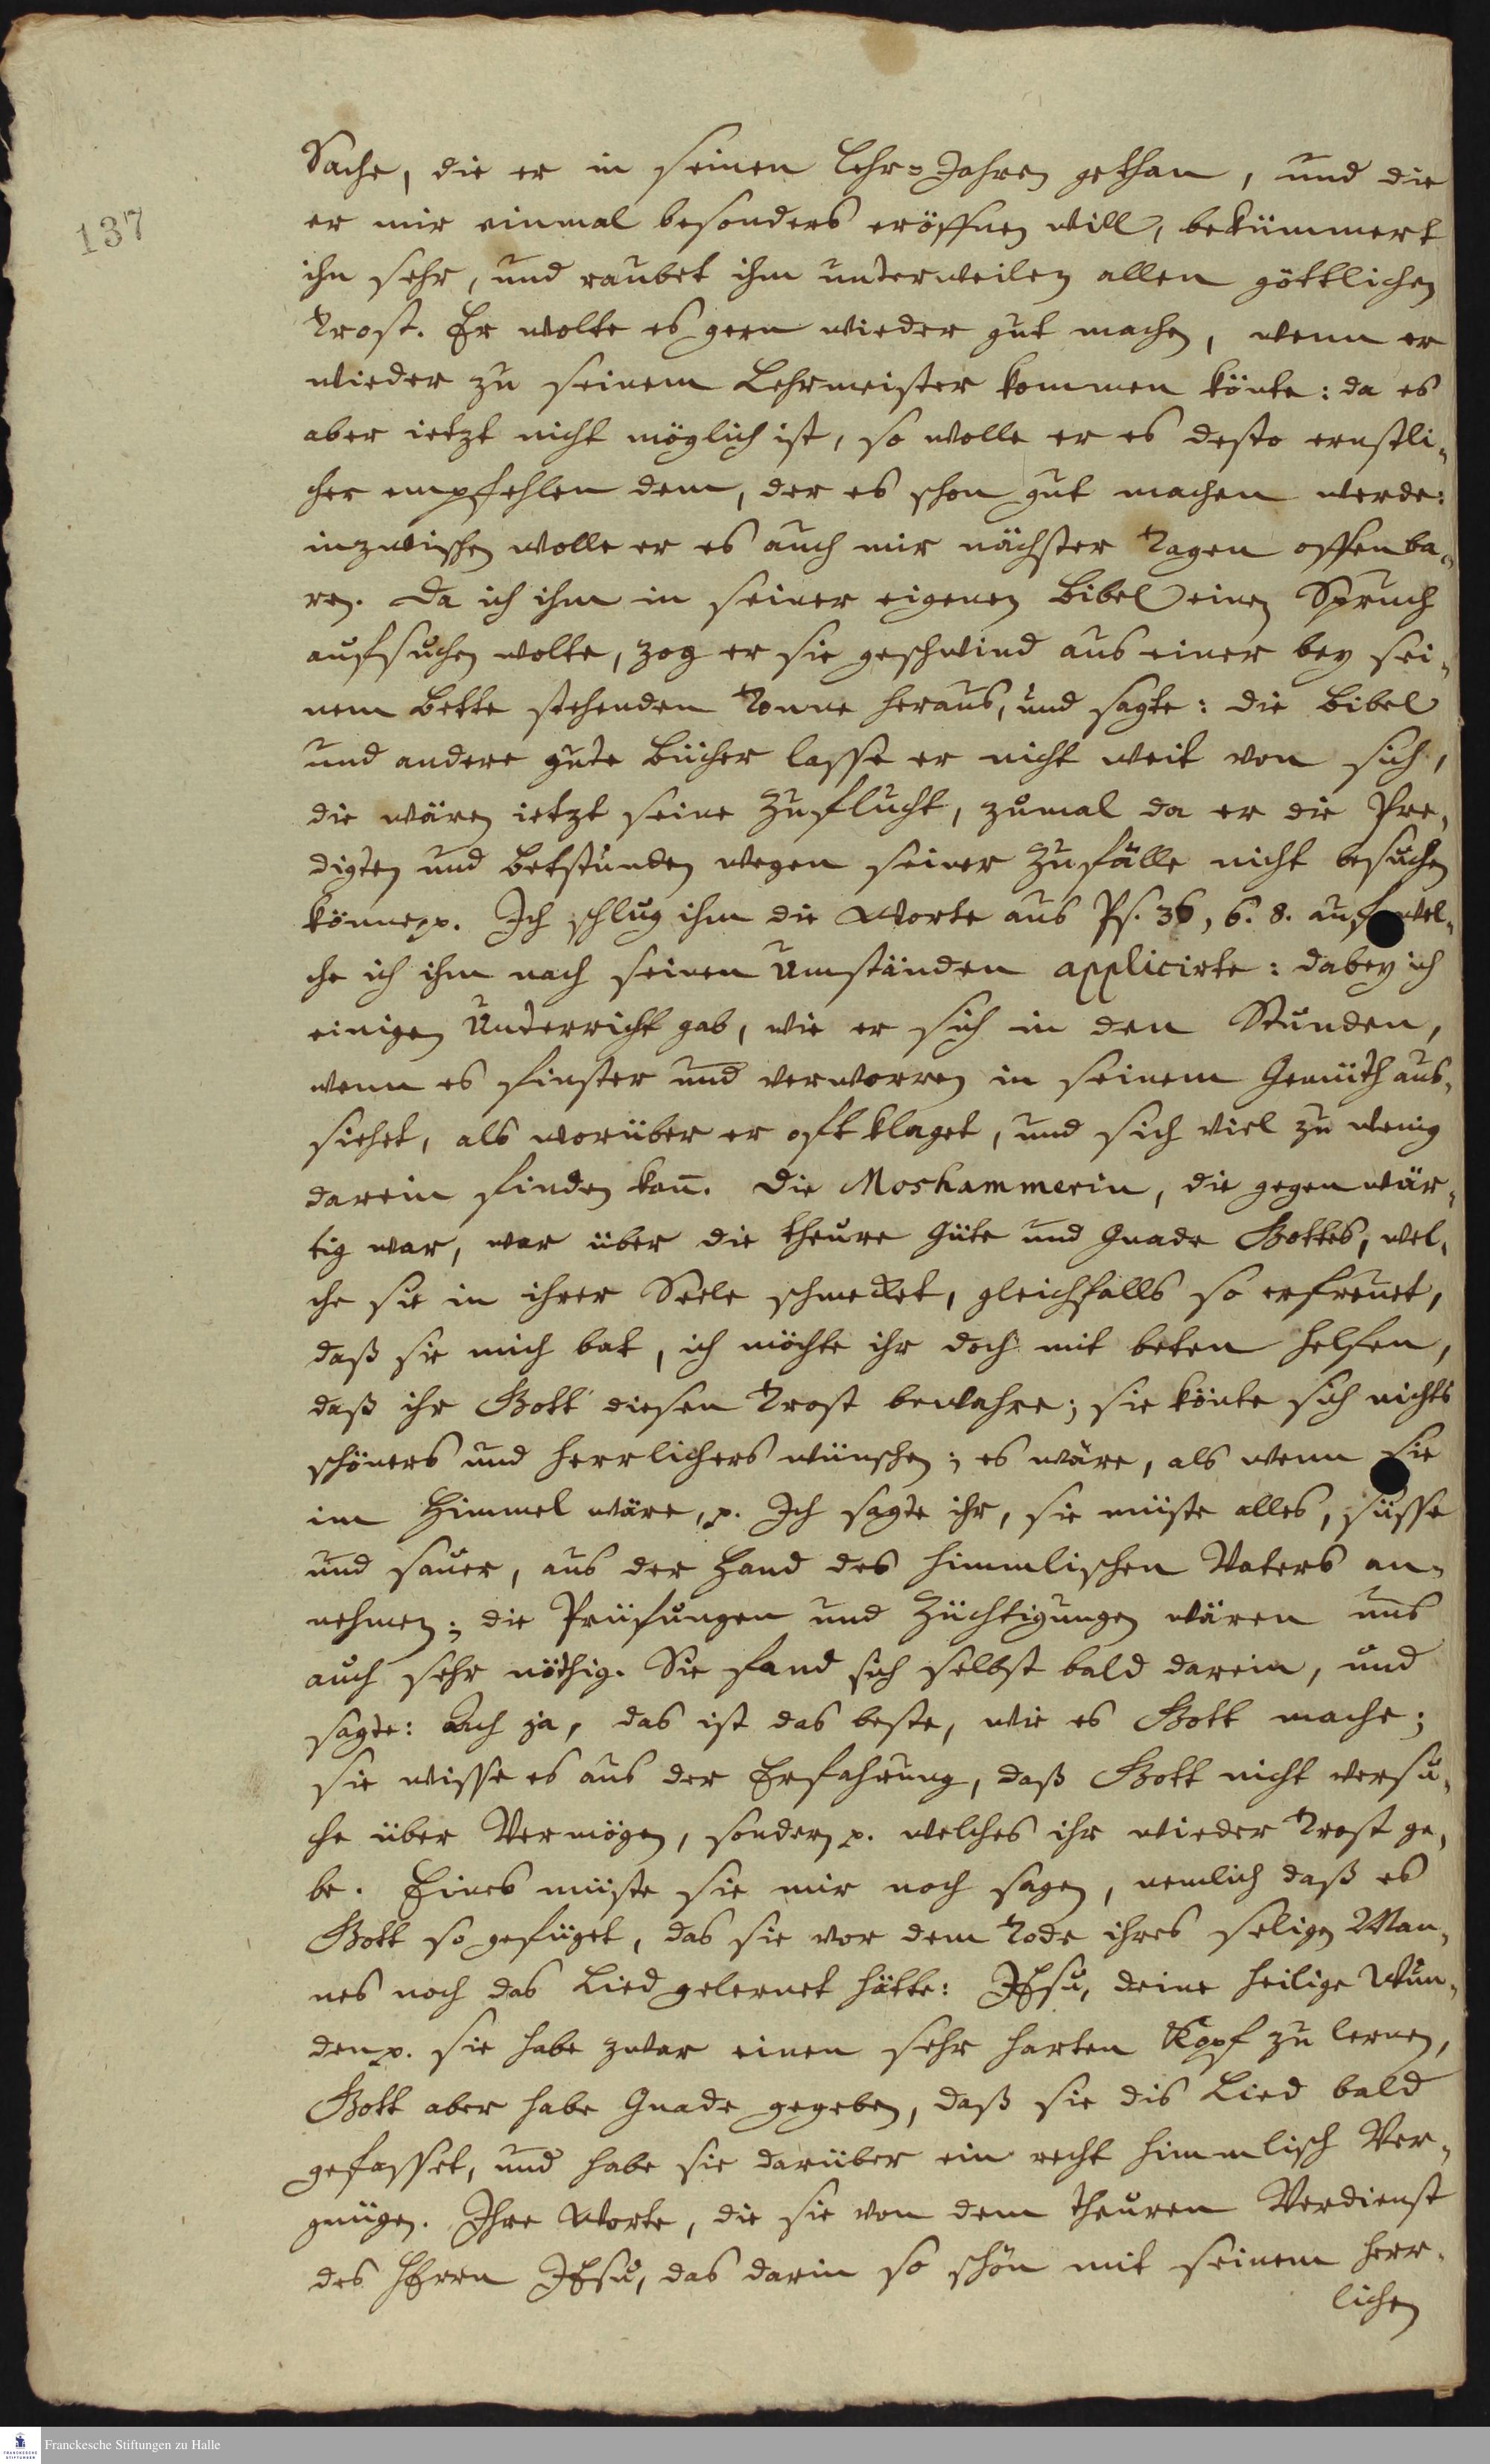 137
Sache, die er in seinen Lehr-Jahren gethan, und die
er mir einmal besonders eröffnen will, bekümmert
ihn sehr, und raubet ihm unterweilen allen göttlichen
Trost. Er wolte es gern wieder gut machen, wenn er
wieder zu seinem Lehrmeister kommen könte: da es
aber ietzt nicht möglich ist, so wolle er es desto ernstli-
cher empfehlen dem, der es schon gut machen werde:
inzwischen wolle er es auch mir nächster Tagen offenba-
ren. Da ich ihm in seiner eigenen Bibel einen Spruch
aufsuchen wolte, zog er sie geschwind aus einer bey sei-
nem Bette stehenden Tonne heraus, und sagte: die Bibel
und andere gute Bücher lasse er nicht weit von sich,
die wären ietzt seine Zuflucht, zumal da er die Pre-
digten und Betstunden wegen seiner Zufälle nicht besuchen
könne pp. Ich schlug ihm die Worte aus Ps. 36, 6. 8. auf wel-
che ich ihm nach seinen Umständen applicirte: dabey ich
einigen Unterricht gab, wie er sich in den Stunden,
wenn es finster und verworren in seinem Gemüth aus-
siehet, als worüber er oft klaget, und sich viel zu wenig
darein finden kañ. Die Moshammerin, die gegenwär-
tig war, war über die theure Güte und Gnade Gottes, wel-
che sie in ihrer Seele schmecket, gleichfalls so erfreuet,
daß sie mich bat, ich möchte ihr doch mit beten helfen,
daß ihr Gott diesen Trost bewahre; sie könte sich nichts
schöners und herrlichers wünschen; es wäre, als wenn sie
im Himmel wäre, p. Ich sagte ihr, sie müste alles, süsse
und sauer, aus der Hand des himmlischen Vaters an-
nehmen; die Prüfungen und Züchtigungen wären uns
auch sehr nöthig. Sie fand sich selbst bald darein, und
sagte: Ach ja, das ist das beste, wie es Gott mache;
sie wisse es aus der Erfahrung, daß Gott nicht versu-
che über Vermögen, sondern p. welches ihr wieder Trost ge-
be. Eines müste sie mir noch sagen, nemlich daß es
Gott so gefüget, das sie vor dem Tode ihres seligen Man-
nes noch das Lied gelernet hätte: JEsu, deine heilige Wun-
den p. sie habe zwar einen sehr harten Kopf zu lernen,
Gott aber habe Gnade gegeben, daß sie dis Lied bald
gefasset, und habe sie darüber ein recht himmlisch Ver-
gnügen. Ihre Worte, die sie von dem theuren Verdienst
des HErrn JEsu, das darin so schön mit seinem herr-
lichen
Franckesche Stiftungen zu Halle